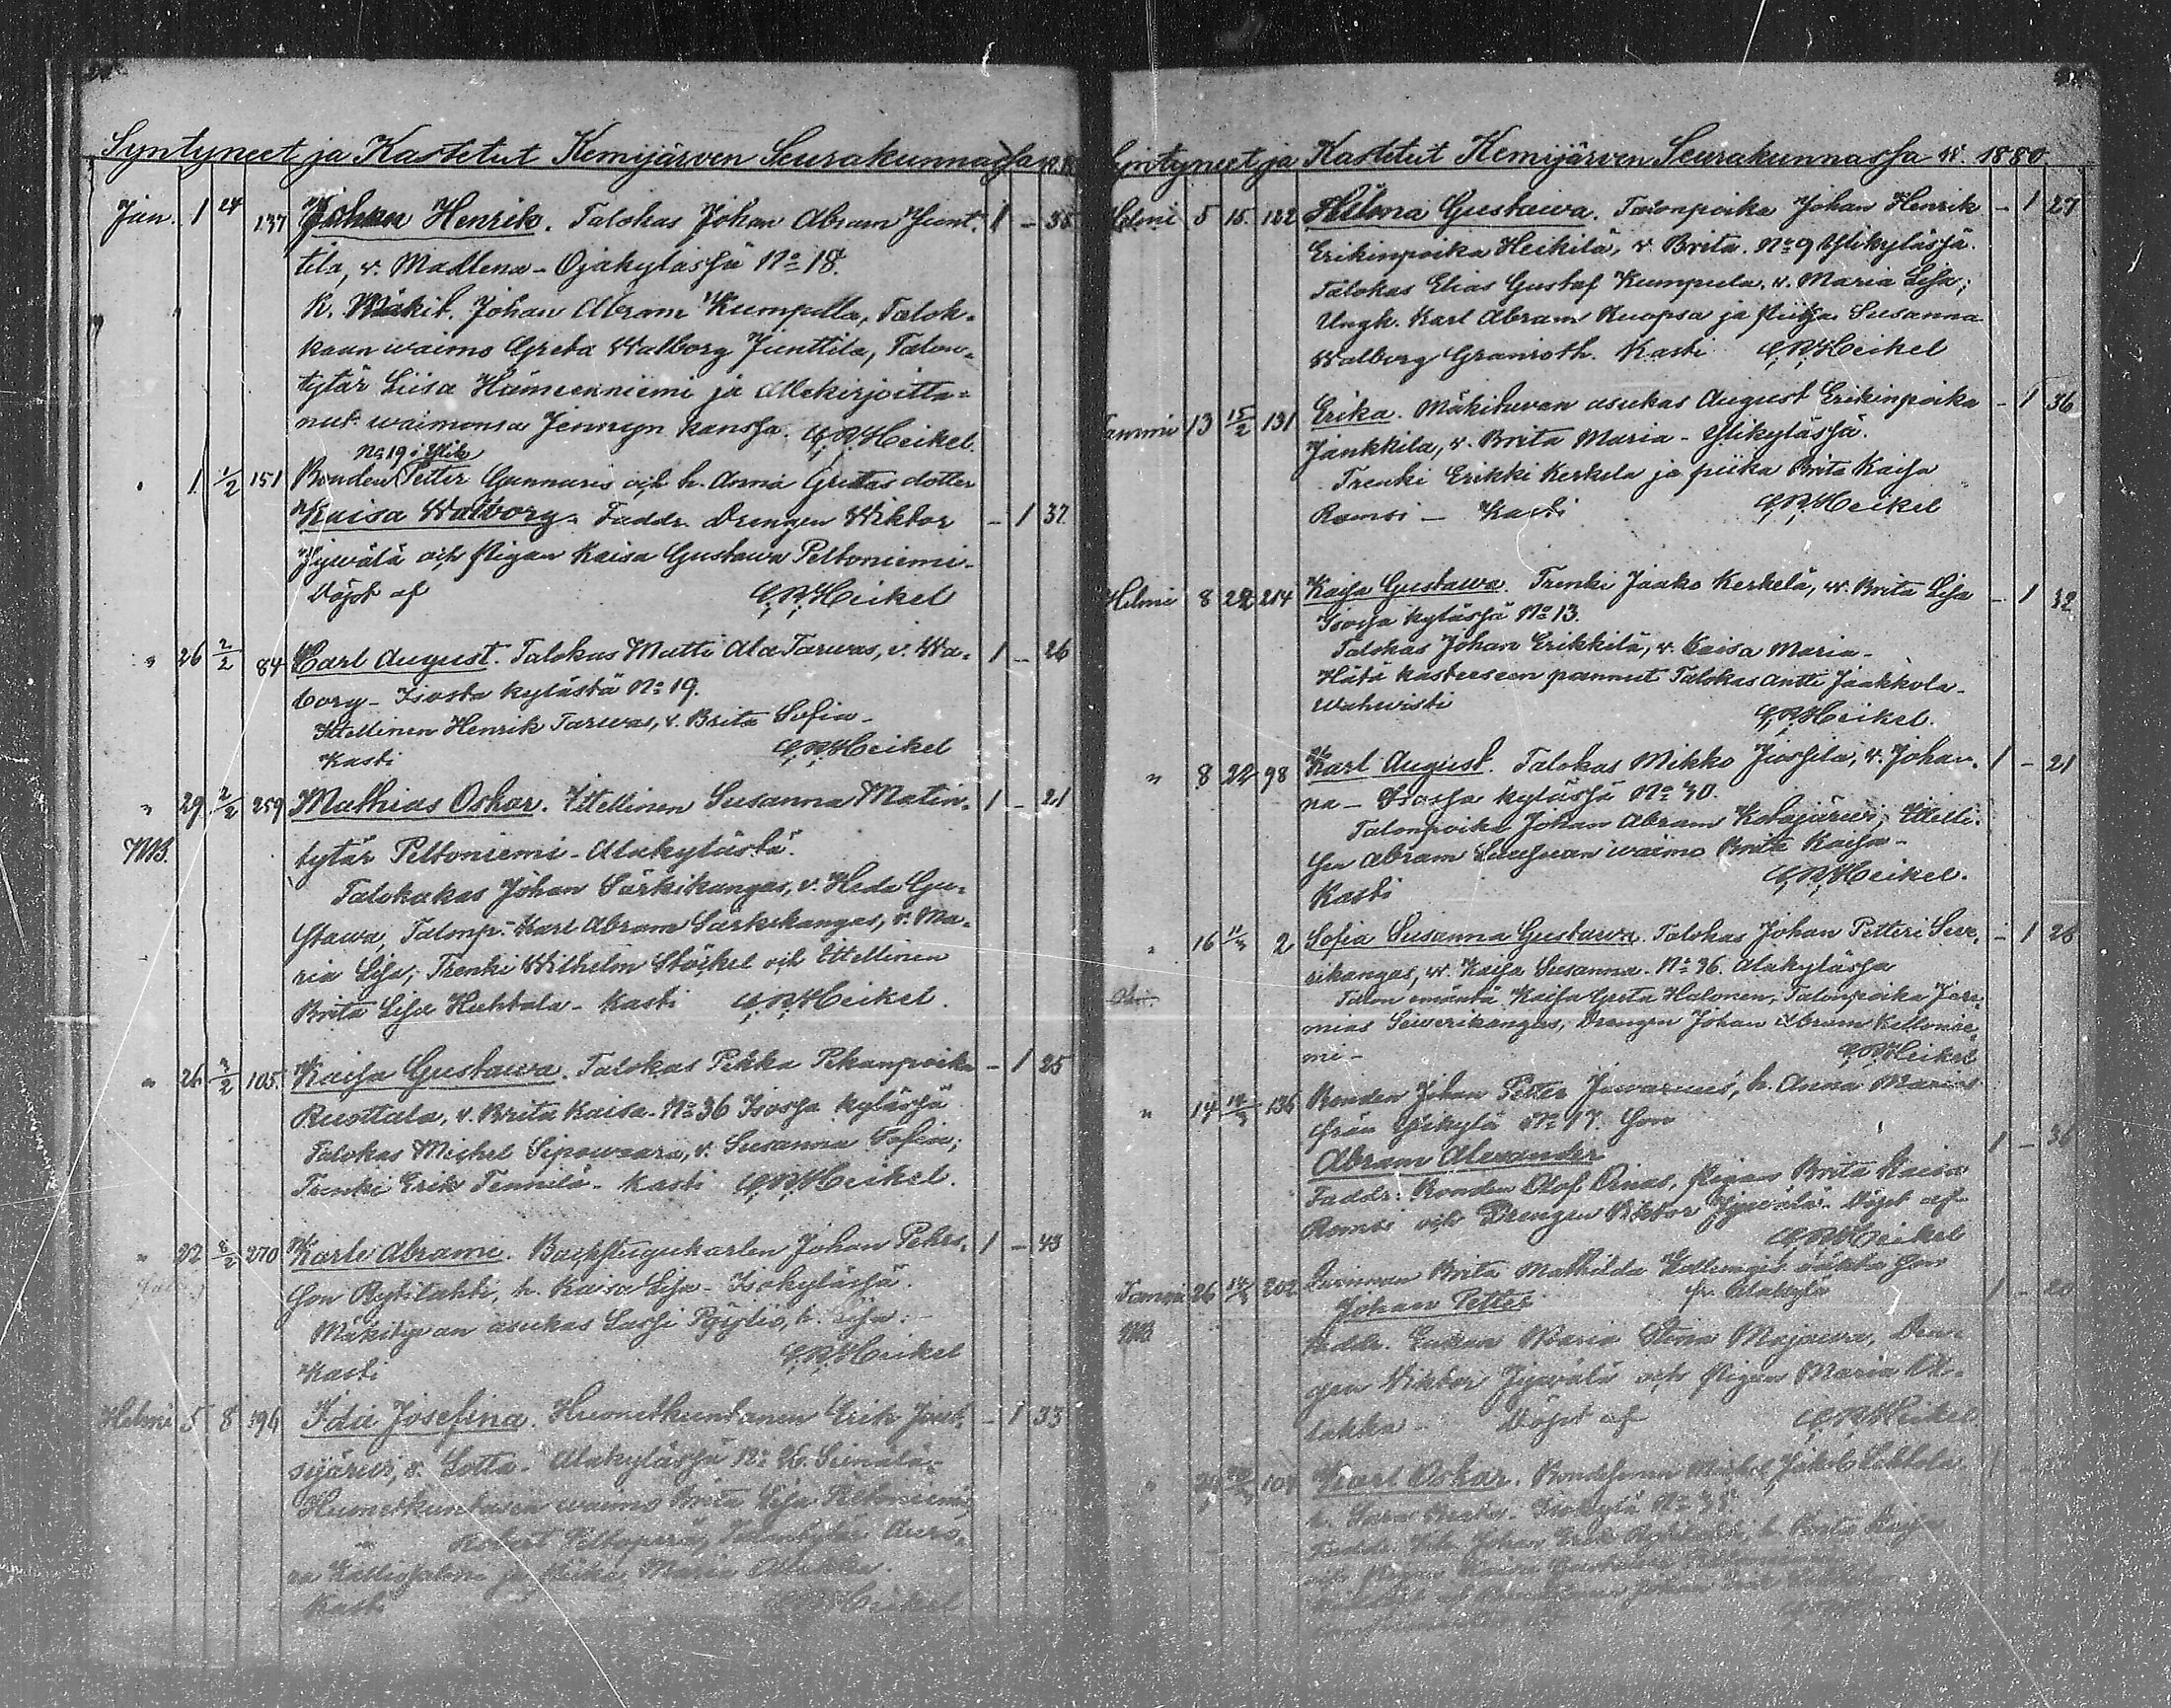 Syntyneet ja Kastetut Kemijärven Seurakunnassa
Jan. 1 24 137 Johan Henrik. Talokas Johan Abram Junt- 1 - 38
tila, v. Madlena - Ojakylässä No 18.
K. Mäkit. Johan Abram Kumpula, Talok-
kaan waimo Greta Walborg Junttila, Talon-
tytär Liisa Hämeenniemi ja Allekirjoitta-
nut waimonsa Jennyn kanssa. Heikel.
No 19 i Ylik
" 1 1/2 151 Bonden Petter Gunnaris och h. Anna Gretas dotter
Kaisa Walborg. Faddr. Drengen Wiktor - 1 37
Jywälä och Pigan Kaisa Gustawa Peltoniemi.
Döpt af Heikel
" 26 2/2 84 Carl August. Talokas Matti Ala Tarwas, v. Wa- 1 - 26
borg - Isosta kylästä No 19.
Itellinen Henrik Tarwas, v. Brita Sofia -
Kasti Heikel
" 29 2/2 259 Mathias Oskar. Itellinen Susanna Matin- 1 - 21
tytär Peltoniemi - Alakylästä.
Talokakas Johan Särkikangas, v. Heda Gu-
stawa, Talonp. Karl Abram Särkikangas, v. Ma-
ria Lisa, Trenki Wilhelm Stöckel och Itellinen
Brita Lisa Huhtala - Kasti Heikel.
" 26 3/2 105. Kaisa Gustawa. Talokas Pekka Pekanpoika - 1 25
Ruottala, v. Brita Kaisa. No 36 Isossa kylässä
Talokas Michel Sipowaara, v. Susanna Sofia;
Trenki Erik Tennilä - Kasti Heikel.
" 22 8/2 270 Karle Abrame. Backstugukarlen Johan Pehrs- 1 - 43
son Kytilahti, h. Kaisa Lisa - Isokylässä.
Mäkituwan asukas Lassi h. Lisa. -
Kasti Heikel
Helmi 5 8 196 Ida Josefina. Huonetkuntanen Erik Jout- - 1 33
sijärwi, v. Lotta - Alakylässä
Huonetkuntasen waimo Brita Lisa Peltoniemi,
" Robert Peltoperä, Talontytär Auro-
ra Kalliosalmi ja Piika Maria
Kasti Heikel
Syntyneet ja Kastetut Kemijärven Seurakunnassa w. 1880.
Helmi 5 15. 122 Hilma Gustawa. Talonpoika Johan Henrik - 1 27
Erikinpoika Heikilä, v. Brita. No 9 Ylikylässä.
Talokas Elias Gustaf Kumpula, v. Maria Lisa;
Ungk. Karl Abram Kuopsa ja Piika Susanna
Walborg Granroth. Kasti Heikel
Tammi 13 15/2 131 Erika. Mäkituwan asukas August Erikinpoika - 1 36
Jankkila, v. Brita Maria - Ylikylässä.
Trenki Erikki Kerkelä ja piika Brita Kaisa
Ramsi - Kasti Heikel
Helmi 8 22 214 Kaisa Gustawa. Trenki Jaako Kerkelä, w. Brita Lisa - 1 32
Isossa kylässä No 13.
Talokas Johan Erikkilä, v. Kaisa Maria -
Hätä kasteeseen pannut Talokas Antti Jaakkola -
wahwisti Heikel.
" 8 22 98 Karl August. Talokas Mikko Jussila, v. Johan- 1 - 21
na - Isossa kylässä No 40.
Talonpoika Johan Abram Kotajärwi, Itelli-
sen Abram waimo Brita Kaisa -
Kasti Heikel.
" 16 2 Sofia Susanna Gustawa. Talokas Johan Petteri Sewe- - 1 26
rikangas, w. Kaisa Susanna. No 36. Alakylässä
Talon emäntä Kaisa Greta Halonen, Talonpoika Jere-
mias Sewerikangas, Drengen Johan Abram Keltonie-
mi - Heikel
" 14 136 Bonden Johan Petter Juwarnus', h. Anna Marias
från Ylikylä No 17. Son
Abram Alexander 1 - 36
Faddr: Bonden Olof Oinas, Pigan Brita Kaisa
Ramsi och Drengen Viktor Jywälä - Döpt af
Heikel
Tammi 26 202 Qvinnan Brita Mathilda oäkta son
Johan Petter fr. Alakylä 1 - 20
Faddr. Enkan Maria Stina Majawa, Dren-
gen Viktor Jywälä och Pigan Maria
Döpt af Heikel
" 104 Karl Oskar. Bondesonen Michel Jakob Lehtola
h. Isokylä
Faddr. Johan Erik h. Brita Kaisa